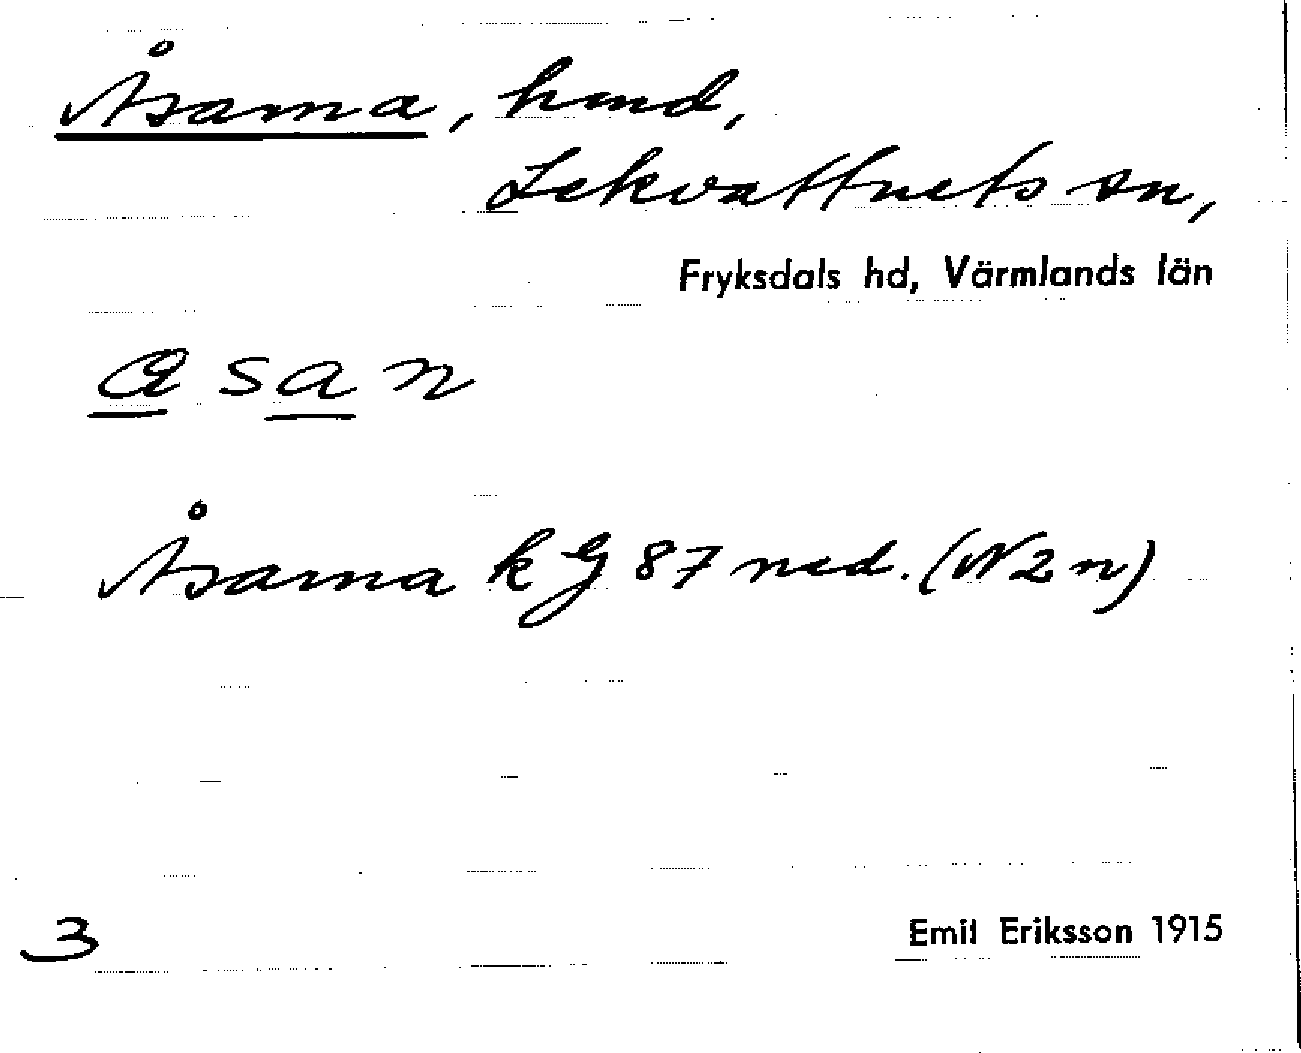 Åsarna, hmd,
Lekvattnets sn,
Fryksdals hd, Värmlands län
a s a n
Åsarna k G 87 ned. (N2n)
3
Emil Eriksson 1915